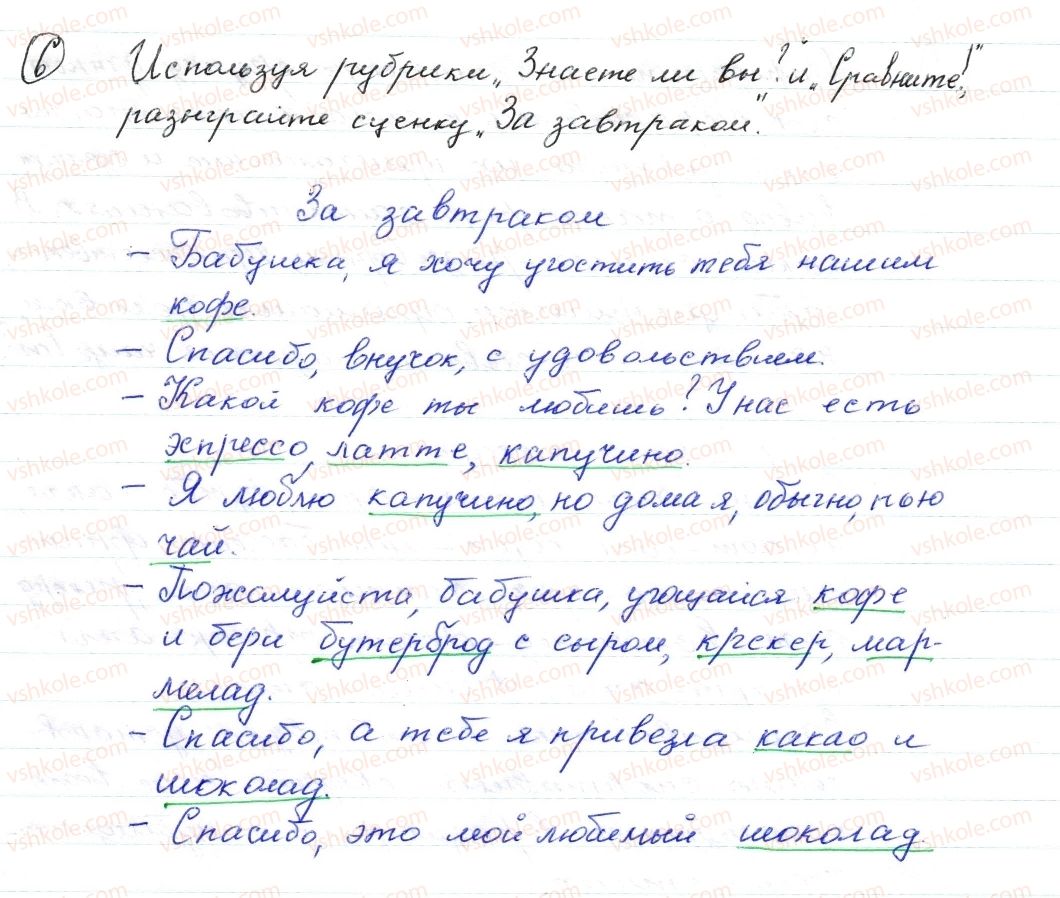 6 Используя рубрики „Знаете ли вы?" и „Сравните!",
разыграйте сценку „За завтраком".
За завтраком
– Бабушка, я хочу угостить тебя нашим
кофе.
– Спасибо, внучок, с удовольствием.
– Какой кофе ты любишь? У нас есть
эспрессо, латте, капучино.
– Я люблю капучино, но дома я, обычно, пью
чай.
– Пожалуйста, бабушка, угощайся кофе
и бери бутерброд с сыром, крекер, мар-
мелад.
– Спасибо, а тебе я привезла какао и
шоколад.
– Спасибо, это мой любимый шоколад.